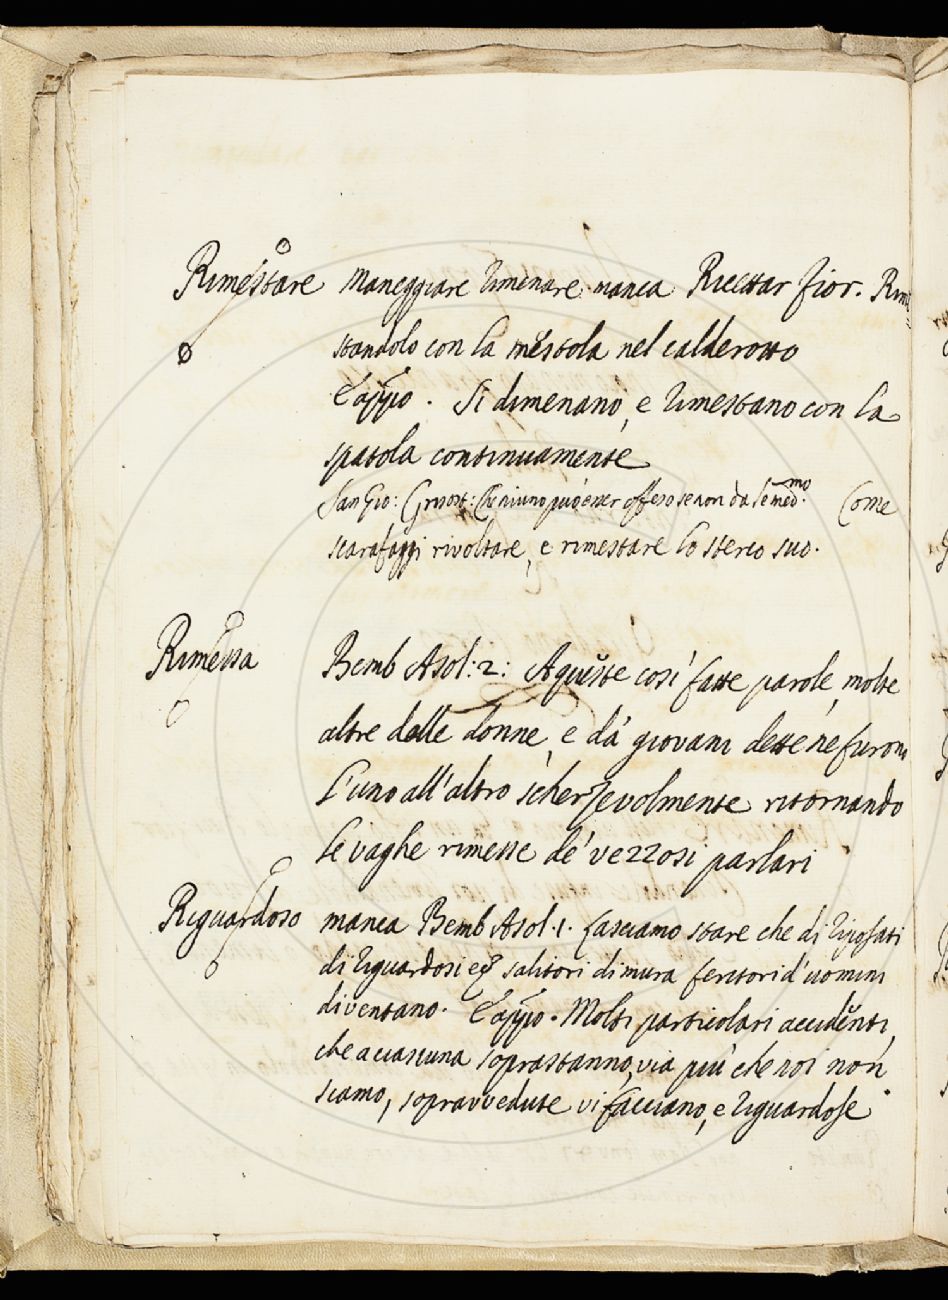 Rimestare maneggiare rimenare manca Ricettar fior. Rime
standolo con la mestola nel calderotto
E appo. Si dimenano, e rimestano con la
spatola continuamente
San Gio: Grisost: Che niuno può esser offeso se non da se med.mo Come
scarafaggi rivoltare, e rimestare lo sterco suo.
Rimessa Bemb Asol: 2: A queste così fatte parole, molte
altre delle donne, e da' giovani dette ne furono
l'uno all'altro scherzevolmente ritornando
le vaghe rimesse de' vezzosi parlari
Riguardoso manca Bemb Asol. 1. lasciamo stare che di riposati
di riguardosi eg salitori di mura feritori d'uomini
diventano. E appo. Molti particolari accidenti,
che a ciascuna soprastanno, via più che noi non
siamo, sopravvedute vi facciano, e riguardose